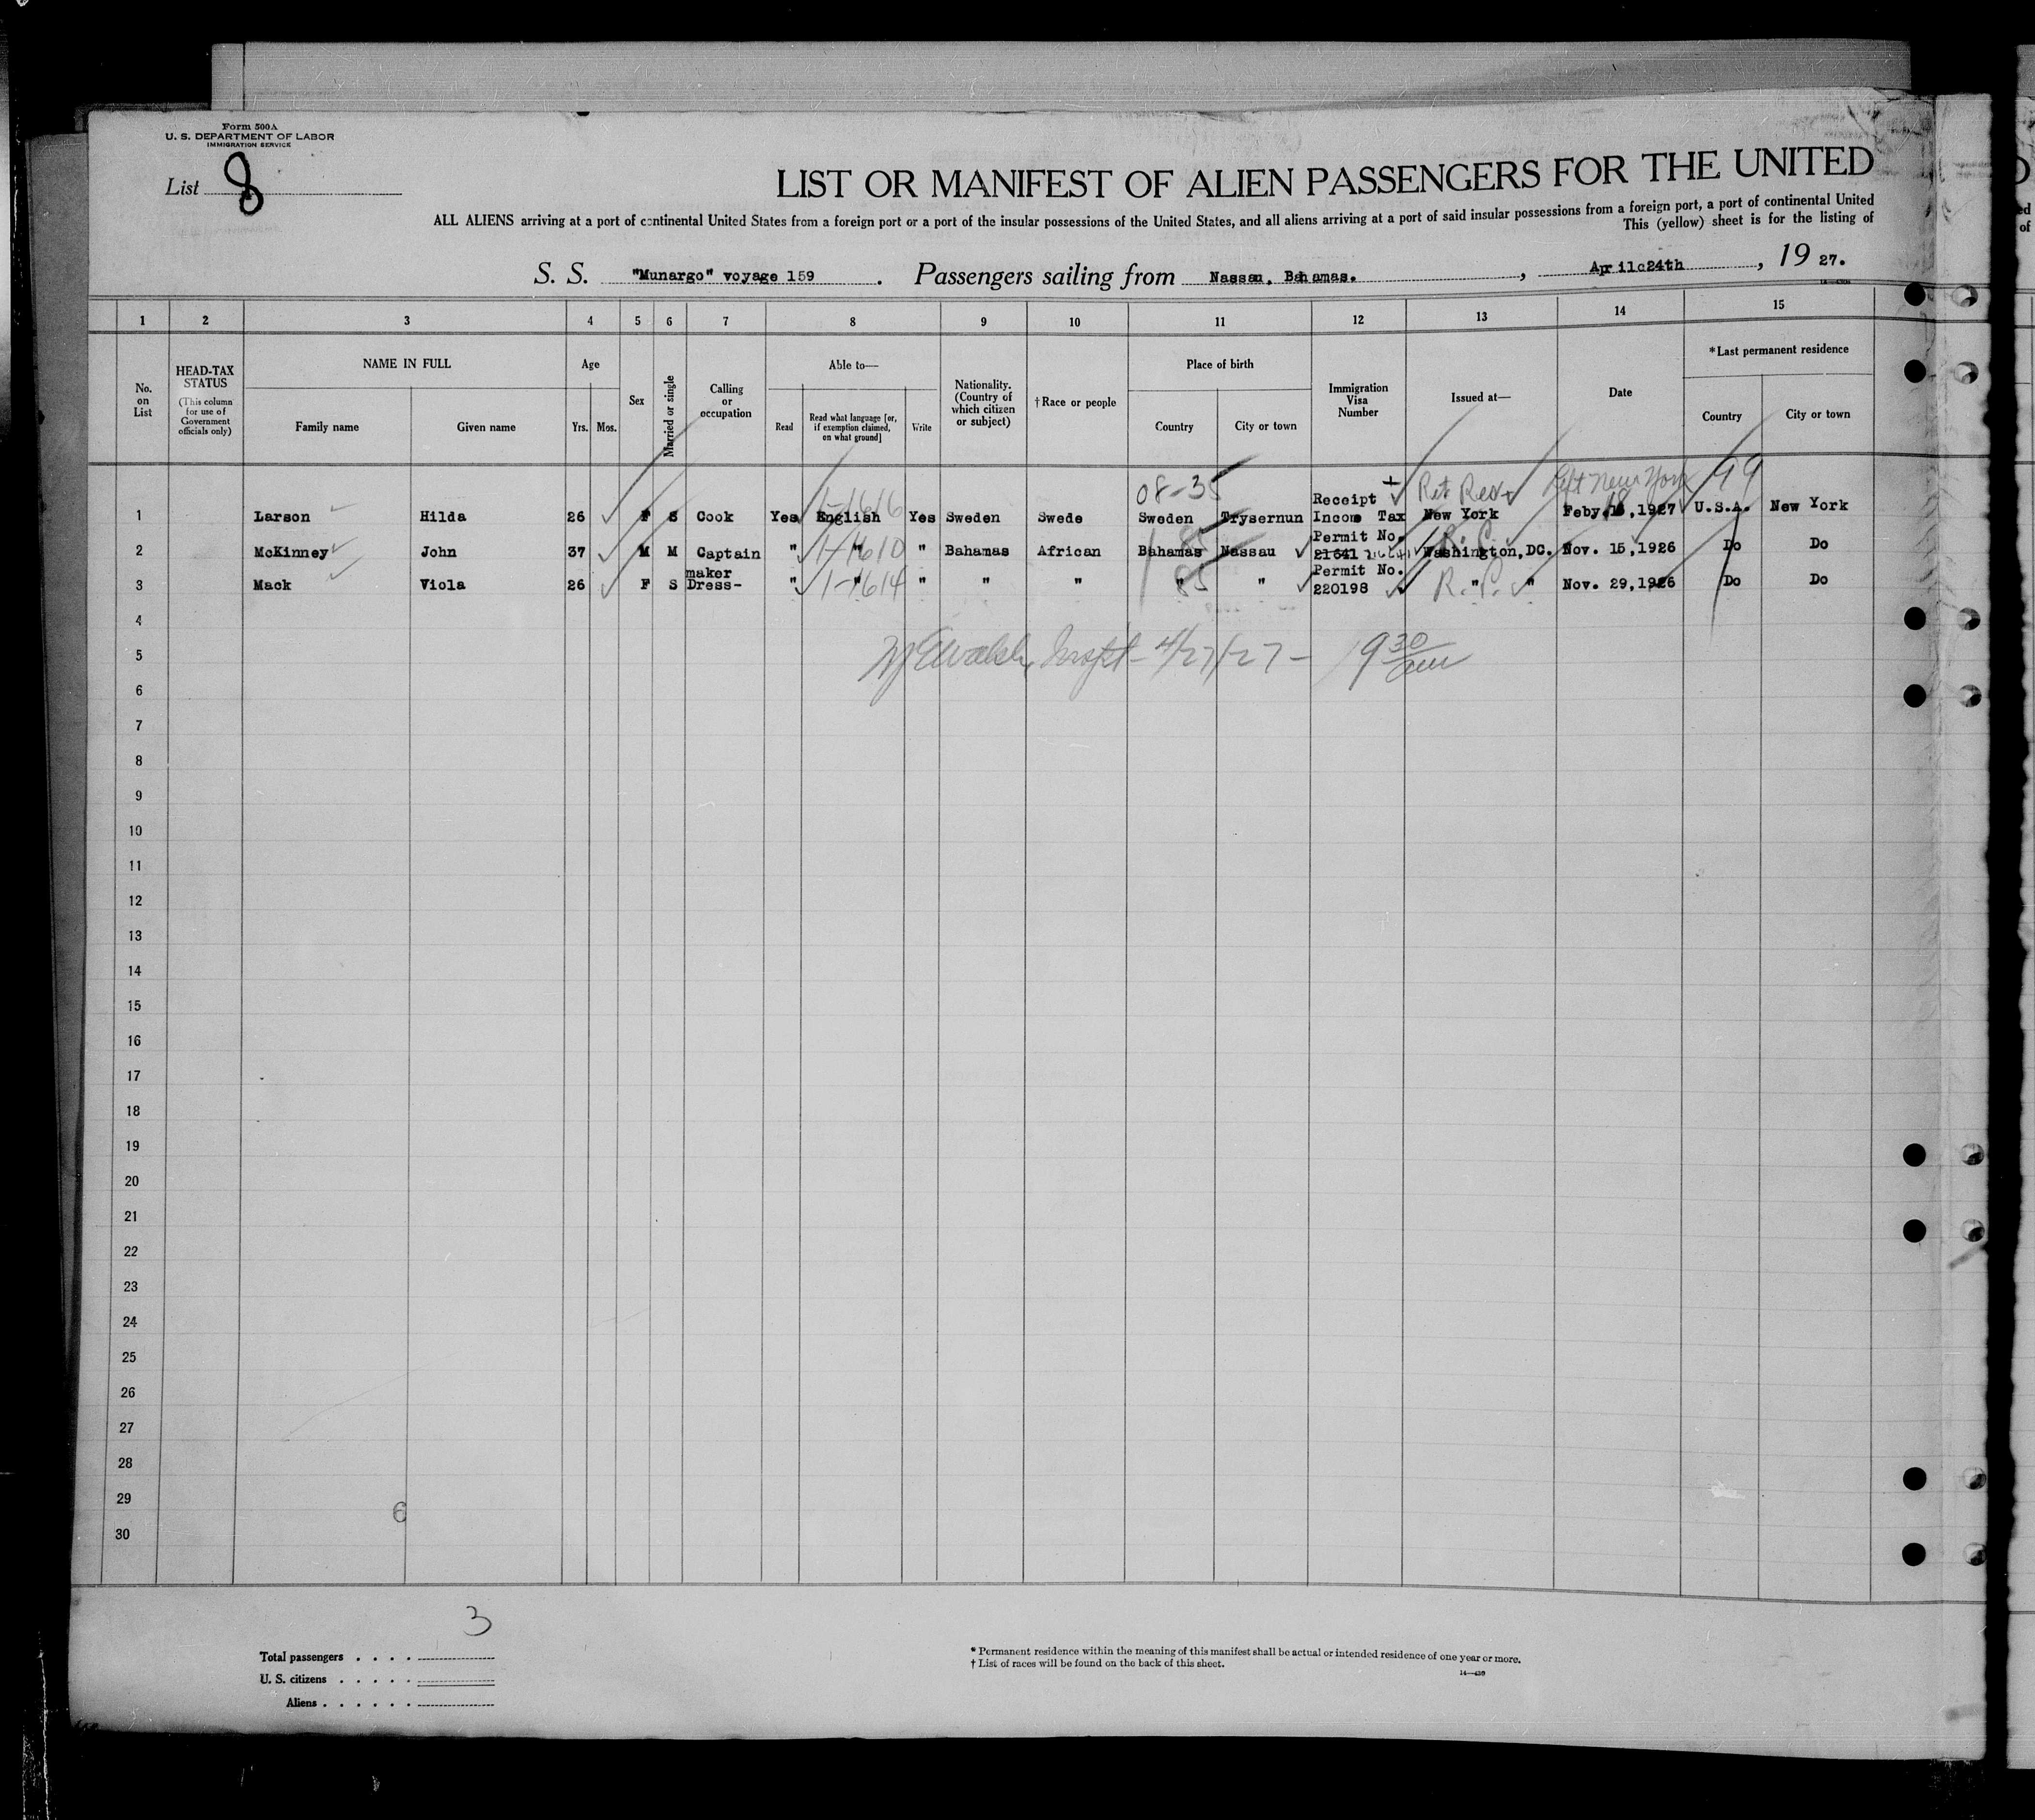 Form 500A
U. S. DEPARTMENT OF LABOR
IMMIGRATION SERVICE
List 8
LIST OR MANIFEST OF ALIEN PASSENGERS FOR THE UNITED
ALL ALIENS arriving at a port of continental United States from a foreign port or a port of the insular possessions of the United States, and all aliens arriving at a port of said insular possessions from a foreign port, a port of continental United
This (yellow) sheet is for the listing of
S. S. "Munargo" voyage 159 . Passengers sailing from Nassau, Bahamas. , Aprilc24th , 19 27.
1 2 3 4 5 6 7 8 9 10 11 12 13 14 15
No. on List
HEAD-TAX STATUS
(This column for use of Government officials only)
NAME IN FULL
Family name Given name
Age
Yrs. Mos.
Sex
Married or single
Calling or occupation
Able to—
Read
Read what language [or, if exemption claimed, on what ground]
Write
Nationality. (Country of which citizen or subject)
†Race or people
Place of birth
Country City or town
Immigration Visa Number
Issued at—
Date
*Last permanent residence
Country City or town
08-35 Ret Res New York 99
1-1616 Receipt 18
1 Larson Hilda 26 F S Cook Yes English Yes Sweden Swede Sweden Trysernun Income Tax New York Feby. ,1927 U.S.A. New York
1-1610 85 Permit No. R.P.
2 McKinney John 37 M M Captain " " " Bahamas African Bahamas Nassau 21641 Washington,DC. Nov. 15,1926 Do Do
maker 1-1614 85 Permit No. R.P.
3 Mack Viola 26 F S Dress- " " " " " " " 220198 " " Nov. 29,1926 Do Do
4
5 Inspt- 4/27/27- 9 30 am
6
7
8
9
10
11
12
13
14
15
16
17
18
19
20
21
22
23
24
25
26
27
28
29
6
30
3
Total passengers . . . .
U. S. citizens . . . . .
Aliens . . . . . .
* Permanent residence within the meaning of this manifest shall be actual or intended residence of one year or more.
† List of races will be found on the back of this sheet.